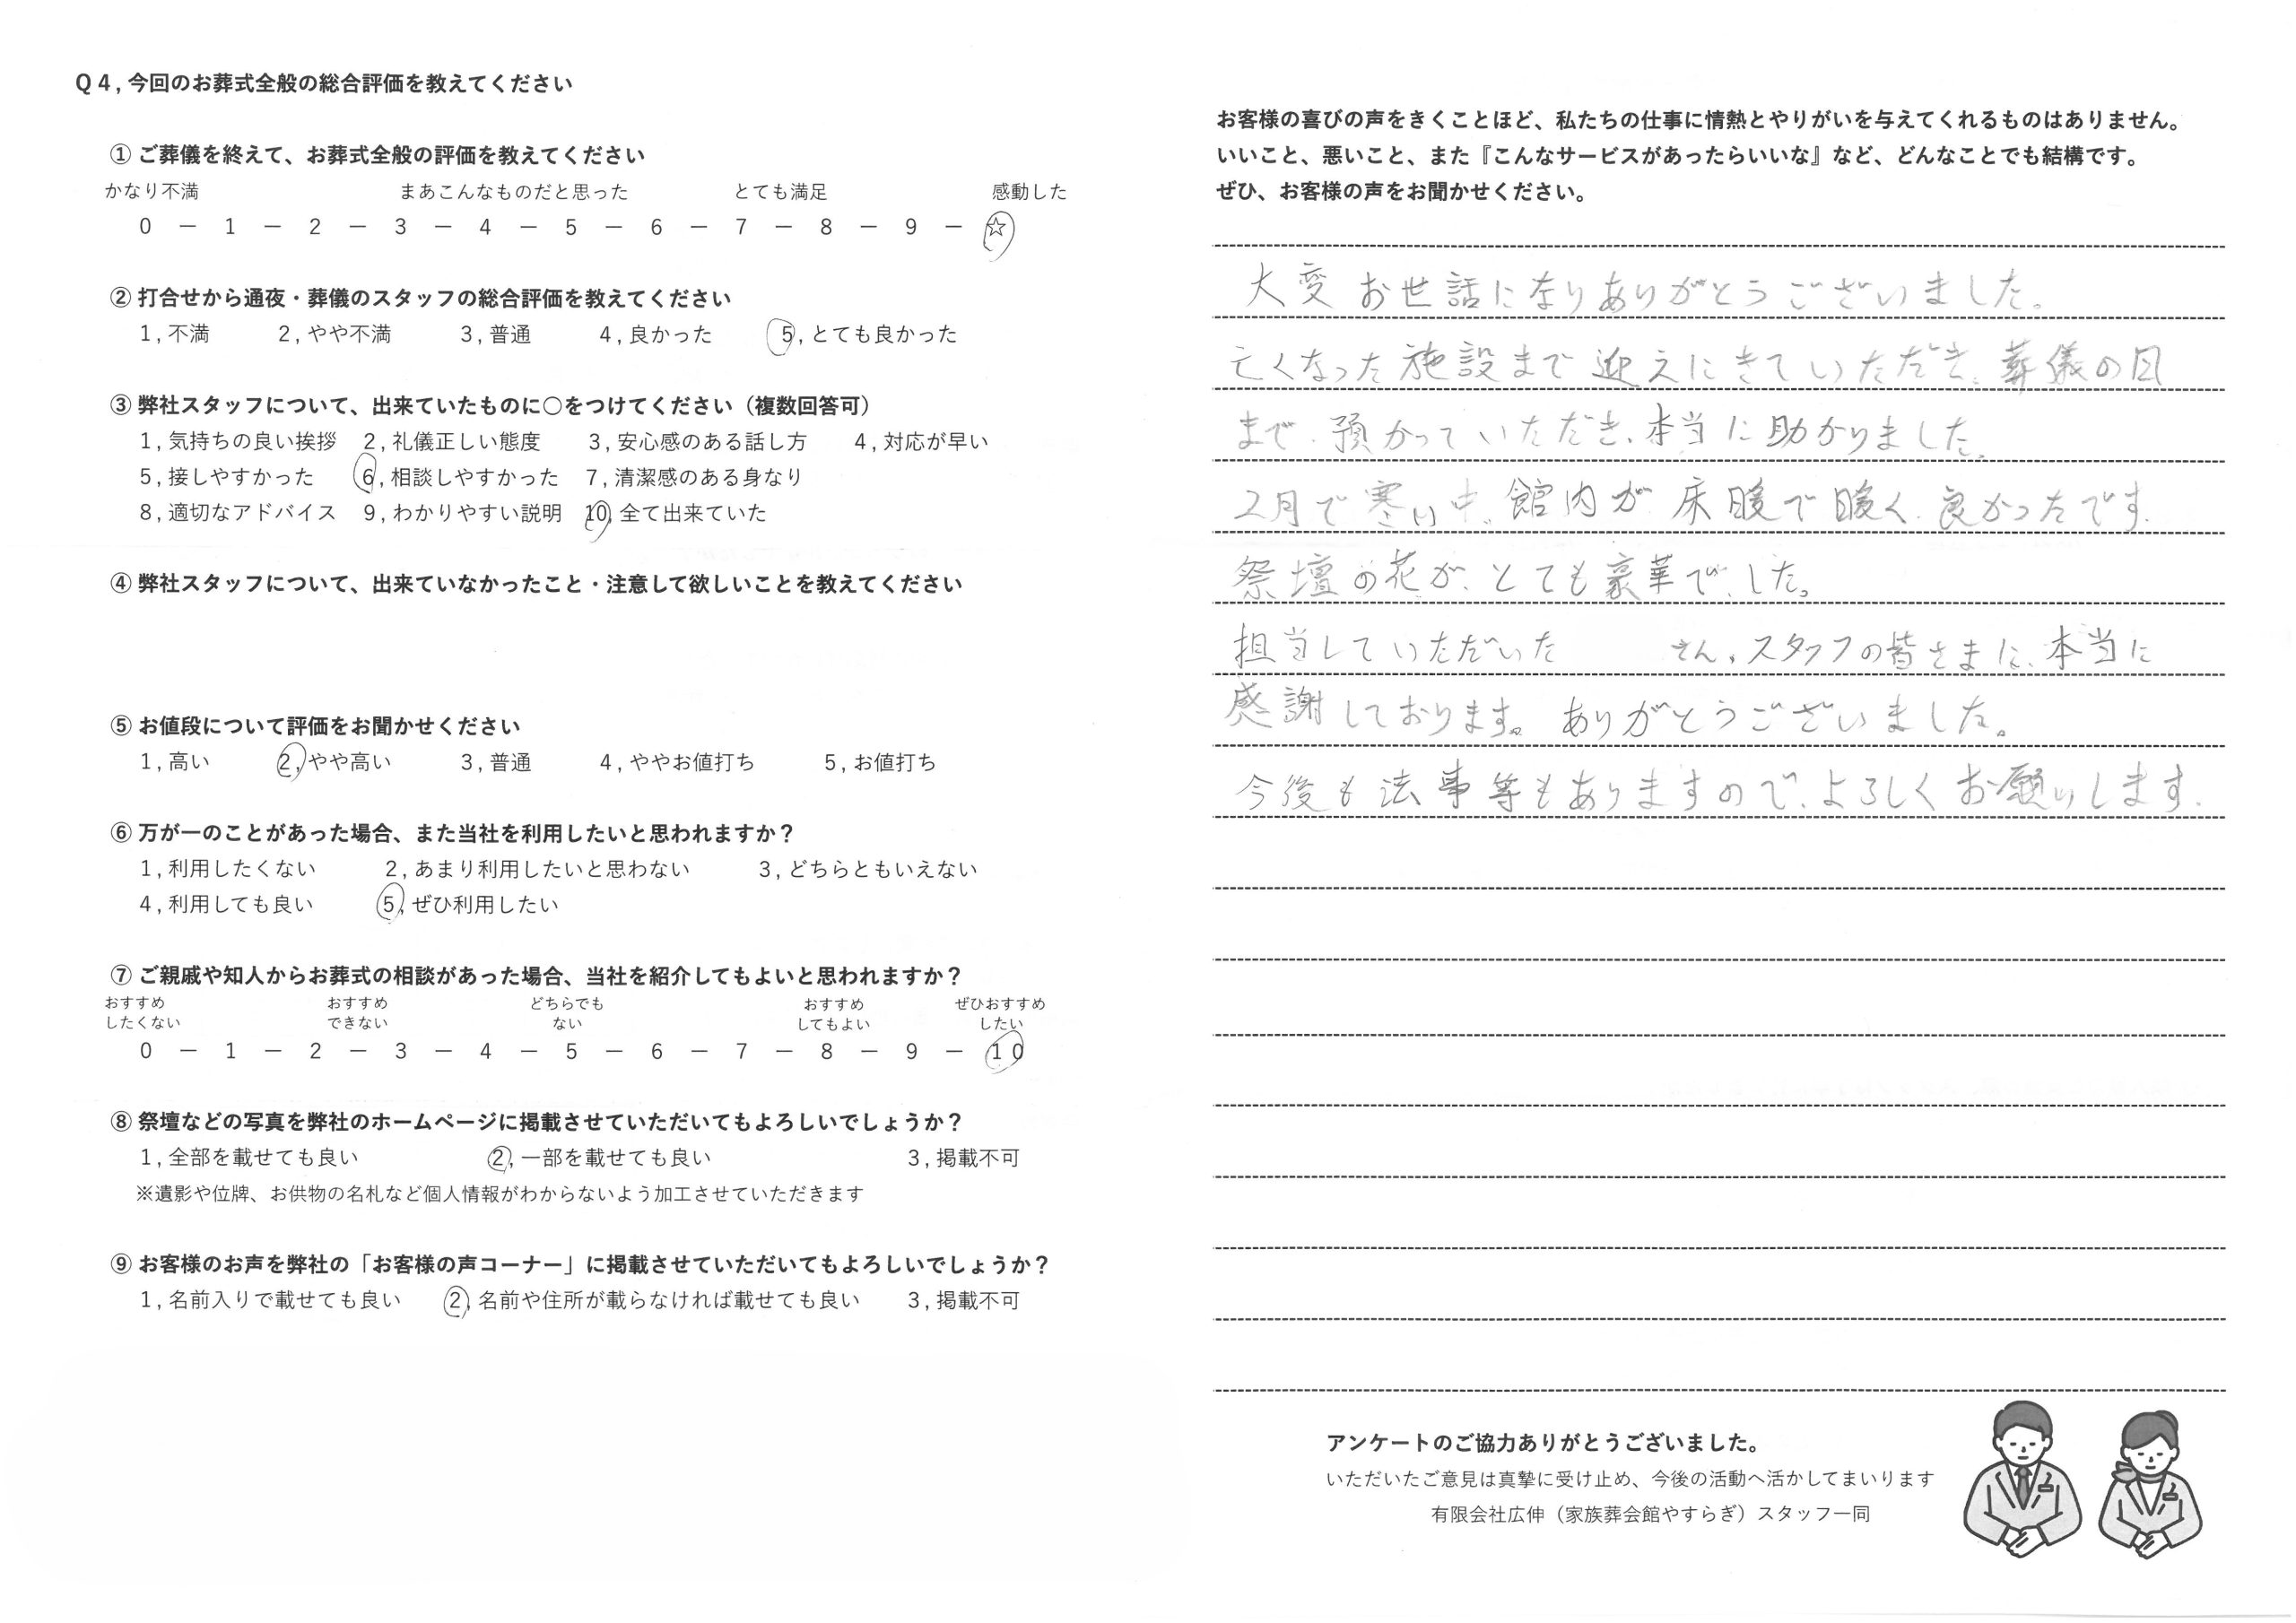 Q4,今回のお葬式全般の総合評価を教えてください
①ご葬儀を終えて、お葬式全般の評価を教えてください
かなり不満 まあこんなものだと思った とても満足 感動した
0 － 1 － 2 － 3 － 4 － 5 － 6 － 7 － 8 － 9 － ☆
②打合せから通夜・葬儀のスタッフの総合評価を教えてください
1,不満 2,やや不満 3,普通 4,良かった 5,とても良かった
③弊社スタッフについて、出来ていたものに○をつけてください（複数回答可）
1,気持ちの良い挨拶 2,礼儀正しい態度 3,安心感のある話し方 4,対応が早い
5,接しやすかった 6,相談しやすかった 7,清潔感のある身なり
8,適切なアドバイス 9,わかりやすい説明 10,全て出来ていた
④弊社スタッフについて、出来ていなかったこと・注意して欲しいことを教えてください
⑤お値段について評価をお聞かせください
1,高い 2,やや高い 3,普通 4,ややお値打ち 5,お値打ち
⑥万が一のことがあった場合、また当社を利用したいと思われますか？
1,利用したくない 2,あまり利用したいと思わない 3,どちらともいえない
4,利用しても良い 5,ぜひ利用したい
⑦ご親戚や知人からお葬式の相談があった場合、当社を紹介してもよいと思われますか？
おすすめ おすすめ どちらでも おすすめ ぜひおすすめ
したくない できない ない してもよい したい
0 － 1 － 2 － 3 － 4 － 5 － 6 － 7 － 8 － 9 － 10
⑧祭壇などの写真を弊社のホームページに掲載させていただいてもよろしいでしょうか？
1,全部を載せても良い 2,一部を載せても良い 3,掲載不可
※遺影や位牌、お供物の名札など個人情報がわからないよう加工させていただきます
⑨お客様のお声を弊社の「お客様の声コーナー」に掲載させていただいてもよろしいでしょうか？
1,名前入りで載せても良い 2,名前や住所が載らなければ載せても良い 3,掲載不可
お客様の喜びの声をきくことほど、私たちの仕事に情熱とやりがいを与えてくれるものはありません。
いいこと、悪いこと、また『こんなサービスがあったらいいな』など、どんなことでも結構です。
ぜひ、お客様の声をお聞かせください。
大変お世話になりありがとうございました。
亡くなった施設まで迎えにきていただき、葬儀の日
まで、預かっていただき、本当に助かりました。
2月で寒い中、館内が床暖で暖く、良かったです。
祭壇の花が、とても豪華でした。
担当していただいた さん、スタッフの皆さまに、本当に
感謝しております。ありがとうございました。
今後も法事等もありますので、よろしくお願いします。
アンケートのご協力ありがとうございました。
いただいたご意見は真摯に受け止め、今後の活動へ活かしてまいります
有限会社広伸（家族葬会館やすらぎ）スタッフ一同